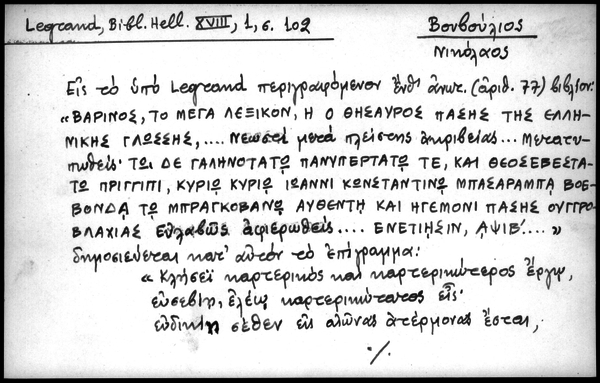 Legrand, Bibl. Hell. XVIII, 1, σ. 102
Βουβούλιος
Νικόλαος
Εἰς τὸ ὑπὸ Legrand περιγραφόμενον ἔνθ' ἀνωτ. (ἀριθ. 77) βιβλίον:
«ΒΑΡΙΝΟΣ, ΤΟ ΜΕΓΑ ΛΕΞΙΚΟΝ, Η Ο ΘΗΣΑΥΡΟΣ ΠΑΣΗΣ ΤΗΣ ΕΛΛΗ-
ΝΙΚΗΣ ΓΛΩΣΣΗΣ, .... Νεωστὶ μετὰ πλείστης ἀκριβείας ... Μετατυ-
πωθεὶς· ΤΩι ΔΕ ΓΑΛΗΝΟΤΑΤῼ ΠΑΝΥΠΕΡΤΑΤῼ ΤΕ, ΚΑΙ ΘΕΟΣΕΒΕΣΤΑ-
Τῼ ΠΡΙΓΓΙΠΙ, ΚΥΡΙῼ ΚΥΡΙῼ ΙΩΑΝΝΙ ΚΩΝΣΤΑΝΤΙΝῼ ΜΠΑΣΑΡΑΜΠᾼ ΒΟΕ-
ΒΟΝΔᾼ Τῼ ΜΠΡΑΓΚΟΒΑΝῼ ΑΥΘΕΝΤῌ ΚΑΙ ΗΓΕΜΟΝΙ ΠΑΣΗΣ ΟΥΓΓΡΟ-
ΒΛΑΧΙΑΣ Εὐλαβῶς ἀφιερωθείς .... ΕΝΕΤΙΗΣΙΝ, ΑΨΙΒ'. ... »
δημοσιεύεται κατ' αὐτὸν τὸ ἐπίγραμμα:
« Κλήσεϊ καρτερικὸς καὶ καρτερικώτερος ἔργῳ,
εὐσεβίῃ, ἐλέῳ καρτερικώτατος εἶς·
εὐδικίη σέθεν εἰς αἰῶνας ἀτέρμονας ἔσται,
./.